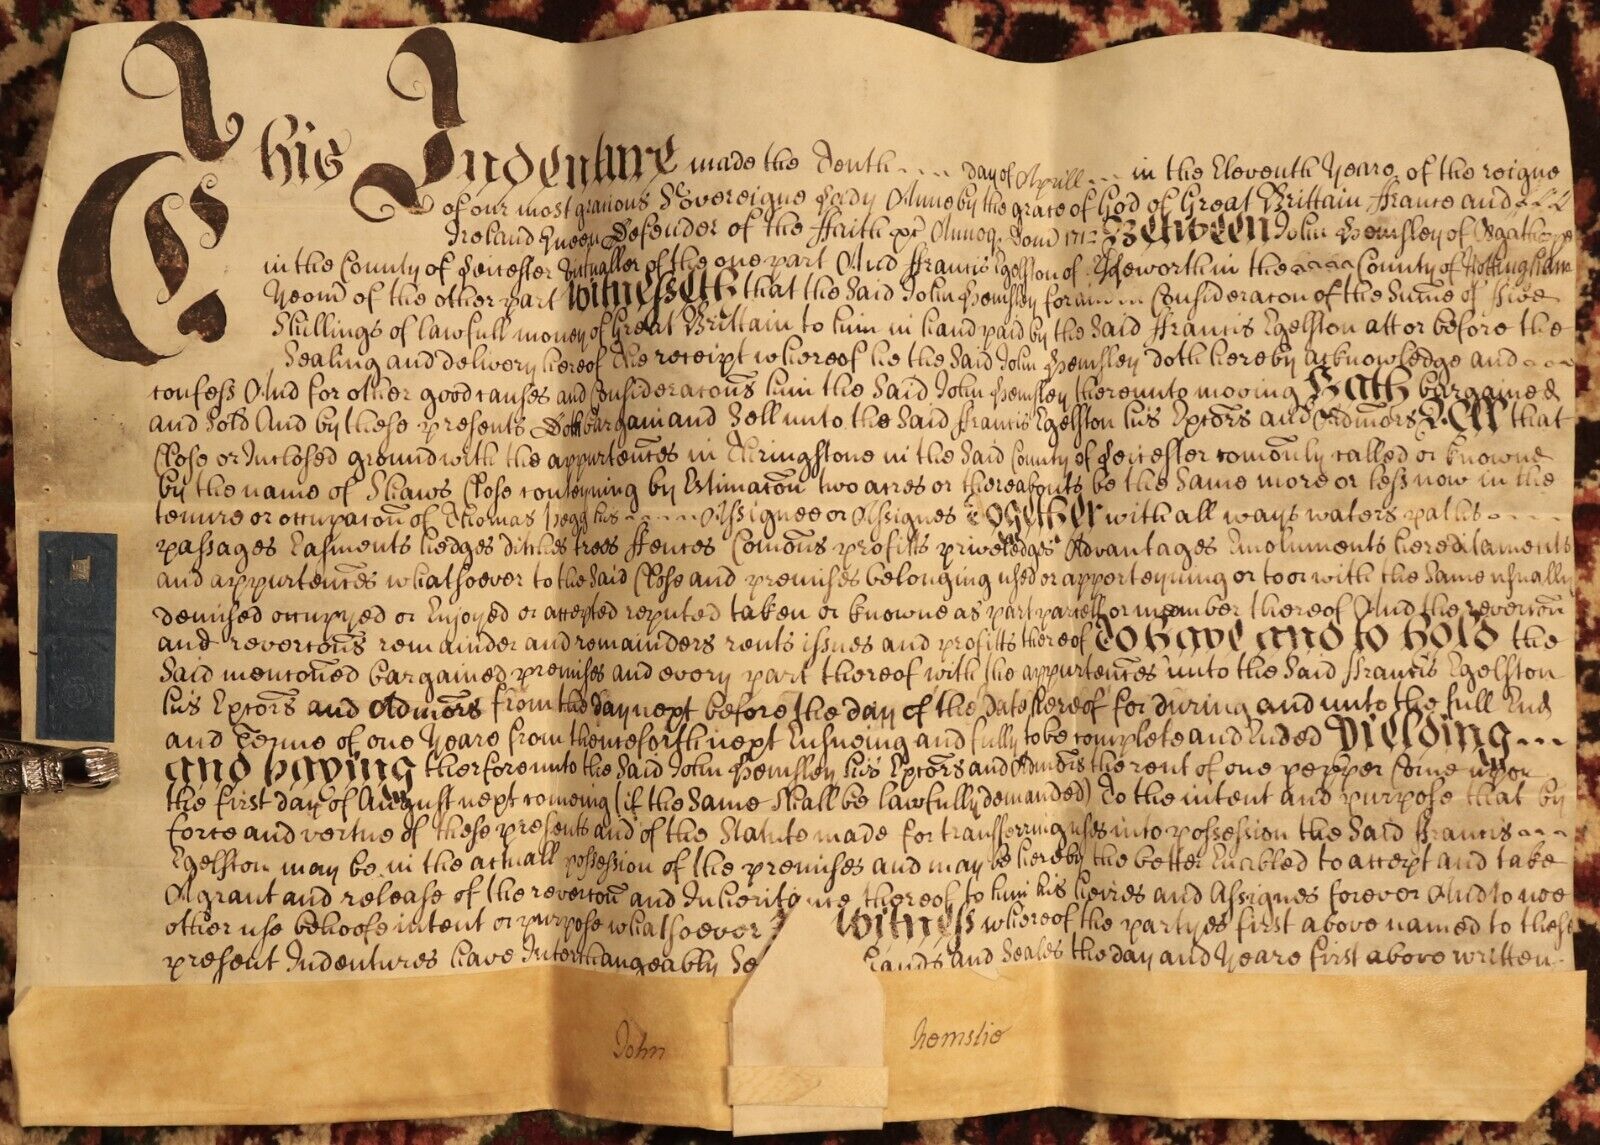 This Indenture made the Tenth day of Aprill in the Eleventh Yeare of the reigne
of our most gracious Sovereigne Lady Anne by the grace of God of Great Brittain ffrance and
Ireland Queen Defender of the ffaith &c Annoq Dom 1712 Between John Hemsley of Osgathorpe
in the County of Leicester Victualler of the one part And ffrancis Egelston of in the County of Nottingham
Yeom of the other part Witnesseth that the said John Hemsley for and in Consideracon of the Sume of ffive
Shillings of lawfull money of Great Brittain to him in hand paid by the said ffrancis Egelston att or before the
Sealing and delivery hereof the receipt whereof he the said John Hemsley doth hereby acknowledge and
confess And for other good causes and Consideracons him the said John Hemsley thereunto moving Hath bargained
and sold And by these presents Doth bargain and sell unto the said ffrancis Egelston his Exctors and Admors All that
Close or Inclosed ground with the appurtences in Thringstone in the said County of Leicester comonly called or knowne
by the name of Shaws Close conteyning by Estimacon two acres or thereabouts be the same more or less now in the
tenure or occupacon of Thomas his Assignee or Assignes Together with all ways waters paths
passages Easments hedges ditches trees ffences Comons profitts priveledges Advantages Emoluments hereditaments
and appurtences whatsoever to the said Close and premises belonging used or apperteyning or to or with the same usually
demised occupyed or Enjoyed or accepted reputed taken or knowne as part parcell or member thereof And the revercon
and revercons remainder and remainders rents issues and profitts thereof To have and to hold the
said menconed bargained premises and every part thereof with the appurtences unto the said ffrancis Egelston
his Exctors and Admors from the day next before the day of the date hereof for during and unto the full End
and Terme of one Yeare from thenceforth next Ensueing and fully to be compleate and Ended Yielding
and paying therfore unto the said John Hemsley his Exctors and Admors the rent of one pepper Corne upon
the first day of August next comeing (if the same shall be lawfully demanded) To the intent and purpose that by
force and vertue of these presents and of the Statute made for transferring uses into possession the said ffrancis
Egelston may be in the actuall possession of the premises and may be hereby the better Enabled to accept and take
A grant and release of the revercon and Inherita nce thereof to him his heires and Assignes forever And to noe
other use behoofe intent or purpose whatsoever Witness whereof the partyes first above named to these
present Indentures have Interchangeably Se hands and Seales the day and Yeare first above written
John Hemslie